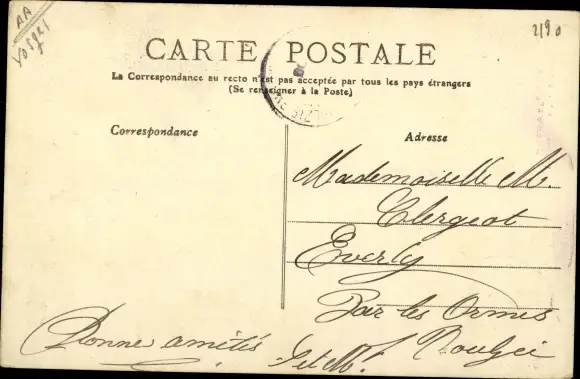 AA
Vosges
2190
CARTE POSTALE
La Correspondance au recto n'est pas acceptée par tous les pays étrangers
(Se renseigner à la Poste)
Correspondance
Adresse
Mademoiselle M.
Clergeot
Everly
Par les Ormes
Bonne amitiés
S et M